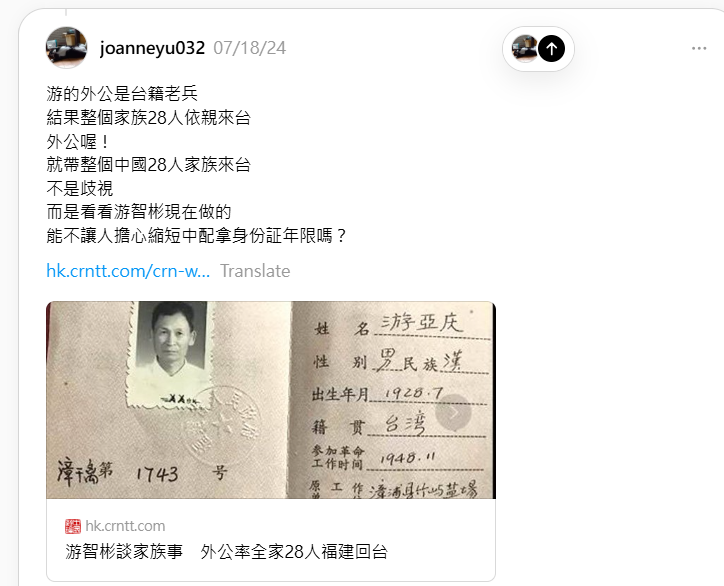 joanneyu032 07/18/24
游的外公是台籍老兵
結果整個家族28人依親來台
外公喔！
就帶整個中國28人家族來台
不是歧視
而是看看游智彬現在做的
能不讓人擔心縮短中配拿身份証年限嗎？
hk.crntt.com/crn-w... Translate
姓 名 游亞庆
性 别 男 民族 漢
出生年月 1928.7
籍 贯 台湾
参加革命
工作时间 1948.11
原工作
漳浦县竹屿盐場
第 1743 号
hk.crntt.com
游智彬談家族事 外公率全家28人福建回台